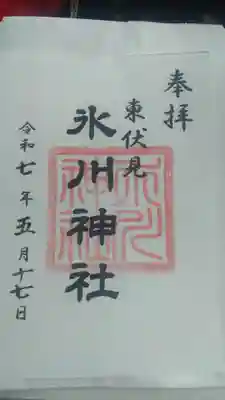 奉拝
東伏見
氷川神社
令和七年五月十七日
氷川神社